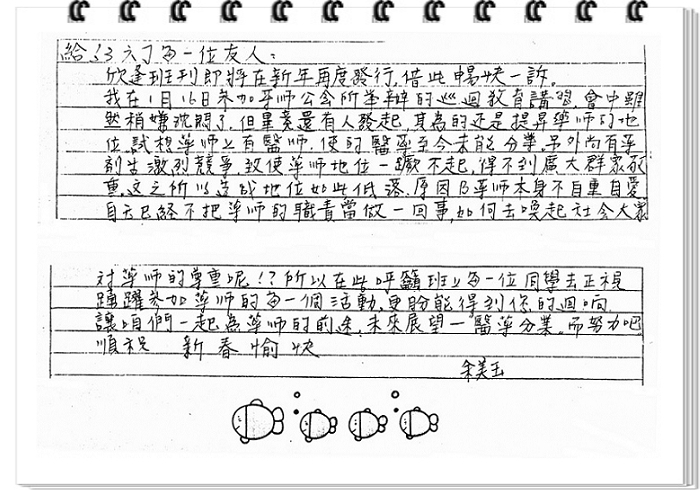 給13六丁每一位友人：
欣逢班刊即將在新年再度發行,借此暢快一訴。
我在1月16日參加葯师公会所举辦的巡迴教育講習,會中雖
然稍嫌沈悶了,但畢竟還有人發起,其為的还是提昇葯师的地
位,試想葯师上有醫师,使的醫葯至今未能分業,另外尚有葯
劑生激烈競爭致使葯师地位一蹶不起,得不到廣大群眾
重,这之所以造成地位如此低落,原因乃葯师本身不自重自愛
自己已經不把葯师的職責當做一回事,如何去喚起社会大眾
对葯师的尊重呢!?所以在此呼籲班上每一位同學去正視
踴躍參加葯师的每一個活動,更盼能得到你的迴响
讓咱們一起為葯师的前途,未來展望—醫葯分業,而努力吧
順祝 新春愉快
美玉